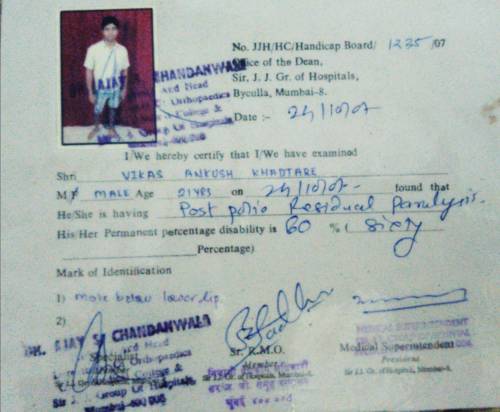 No. JJH/HC/Handicap Board/ 1235 /07
Office of the Dean,
Sir, J. J. Gr. of Hospitals,
Byculla, Mumbai-8.
Date :- 24/10/07
DR. AJAY S. CHANDANWALE
and Head
Orthopaedics
College &
J. J. Group Of Hospitals
I/We hereby certify that I/We have examined
Shri VIKAS ANKUSH KHADTARE
M/F MALE Age 21 YRS on 24/10/07 found that
He/She is having Post polio Residual Paralysis.
His/Her Permanent percentage disability is 60 % ( sixty
Percentage)
Mark of Identification
1) mole below lower lip.
2)
DR. AJAY S. CHANDANWALE
and Head
Orthopaedics
College &
Sir J. J. Group Of Hospitals
Mumbai-400 008
Specialist
Sr. R.M.O.
Member
Sir J.J. Gr. of Hospitals, Mumbai-8.
मुंबई ४०० ००८
MEDICAL SUPERINTENDENT
Medical Superintendent
President
Sir J.J. Gr. of Hospitals, Mumbai-8.